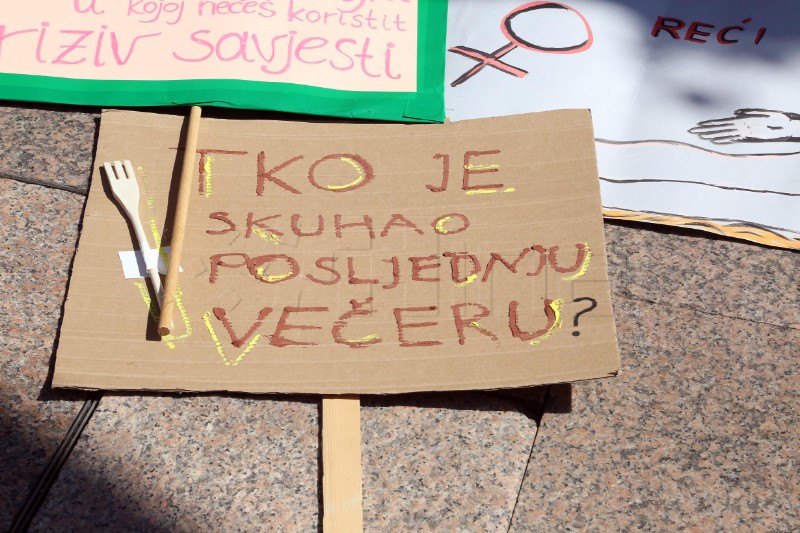 u kojoj nećeš koristit
priziv savjesti
REĆI
TKO JE
SKUHAO
POSLJEDNJU
VEČERU?